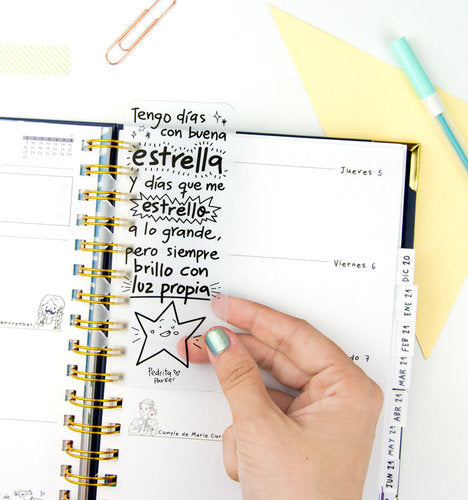 Tengo días
con buena
estrella
y días que me
estrello
a lo grande,
pero siempre
brillo con
luz propia
Pedrita
Parker
Jueves 5
Viernes 6
do 7
Cumple de Marie Cur
DIC 20
ENE 21
FEB 21
MAR 21
ABR 21
MAY 21
JUN 21